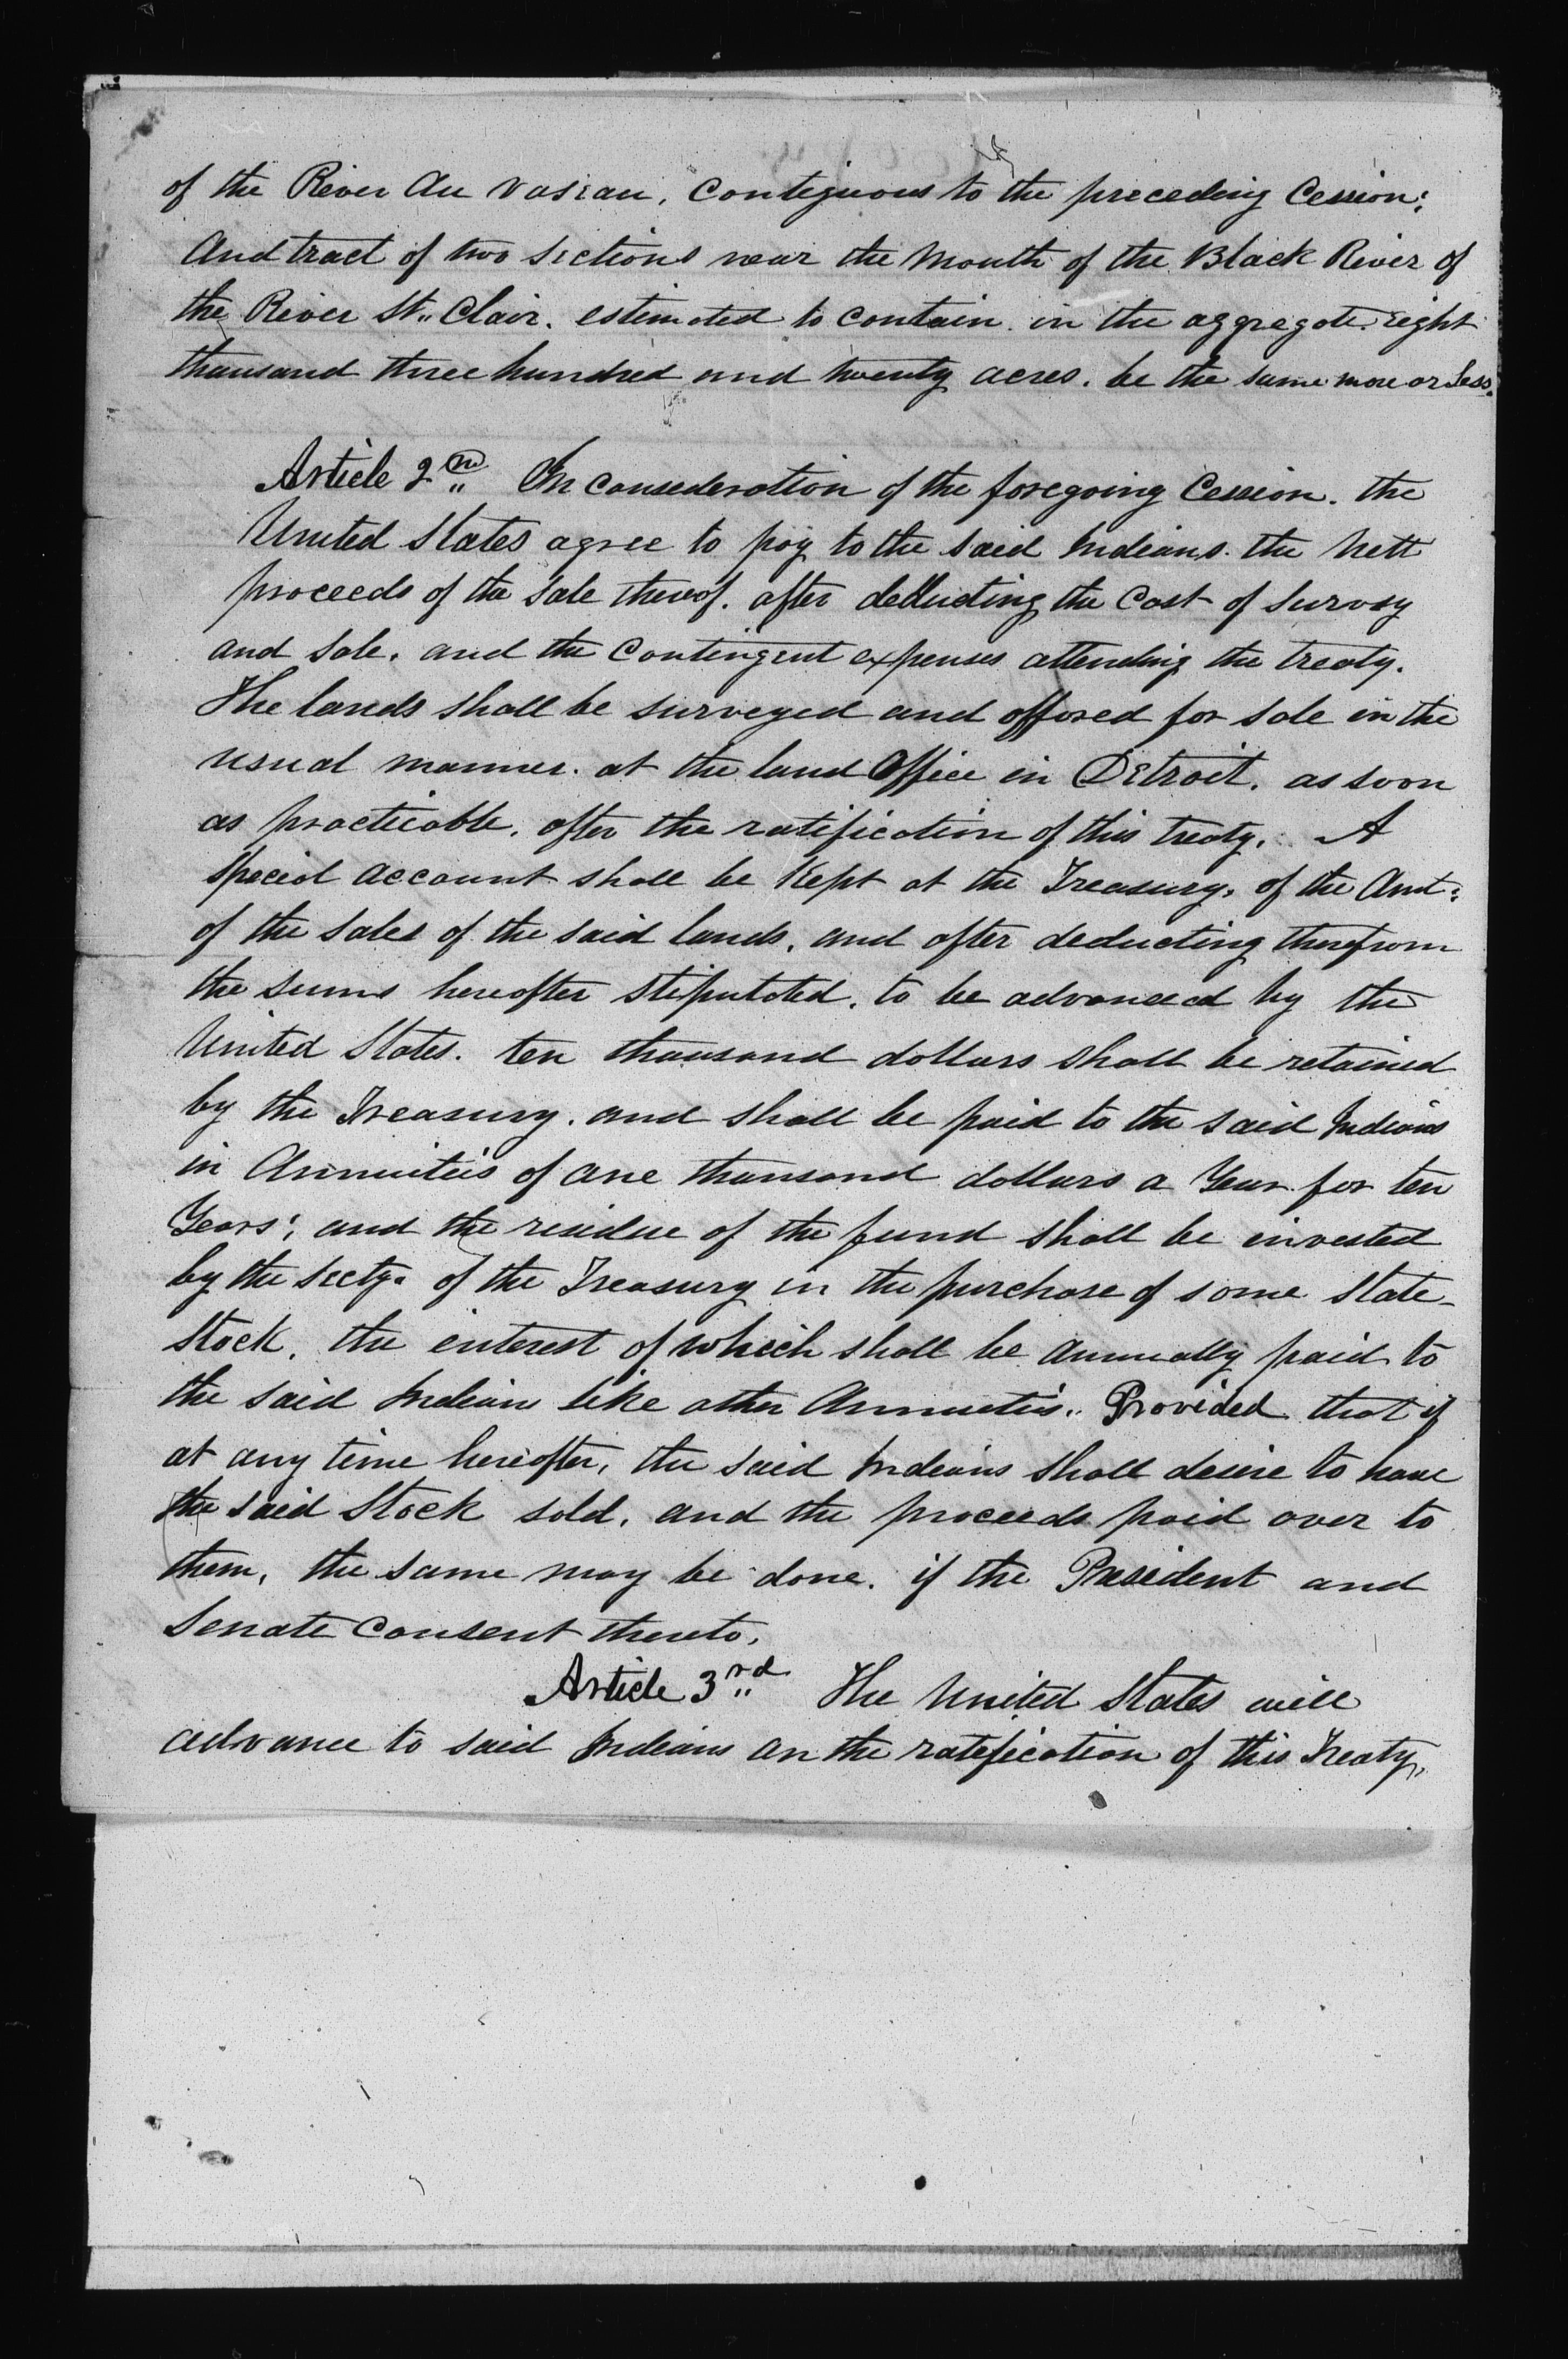 of the River Au Vasian, contiguous to the preceding Cession;
And tract of two sections near the Mouth of the Black River of
the River St. Clair. estimated to contain in the aggregate eight
thousand three hundred and twenty acres. be the same more or less.
Article 2nd In consideration of the foregoing Cession. the
United States agree to pay to the said Indians. the Nett
proceeds of the sale thereof. after deducting the Cost of Survey
and Sale. and the Contingent expenses attending the treaty.
The lands shall be surveyed and offered for sale in the
usual manner. at the land Office in Detroit. as soon
as practicable. after the ratification of this treaty. A
special account shall be Kept at the Treasury, of the Amt:
of the sales of the said lands, and after deducting therefrom
the sums hereafter stipulated. to be advanced by the
United States. ten thousand dollars shall be retained
by the Treasury. and shall be paid to the said Indians
in Annuities of one thousand dollars a Year for ten
Years; and the residue of the fund shall be invested
by the Secty. of the Treasury in the purchase of some State
Stock, the interest of which shall be annually paid to
the said Indians like other Annuities. Provided that if
at any time hereafter, the said Indians shall desire to have
the said Stock sold, and the proceeds paid over to
them, the same may be done. if the President and
Senate consent thereto.
Article 3rd The United States will
advance to said Indians on the ratification of this Treaty,